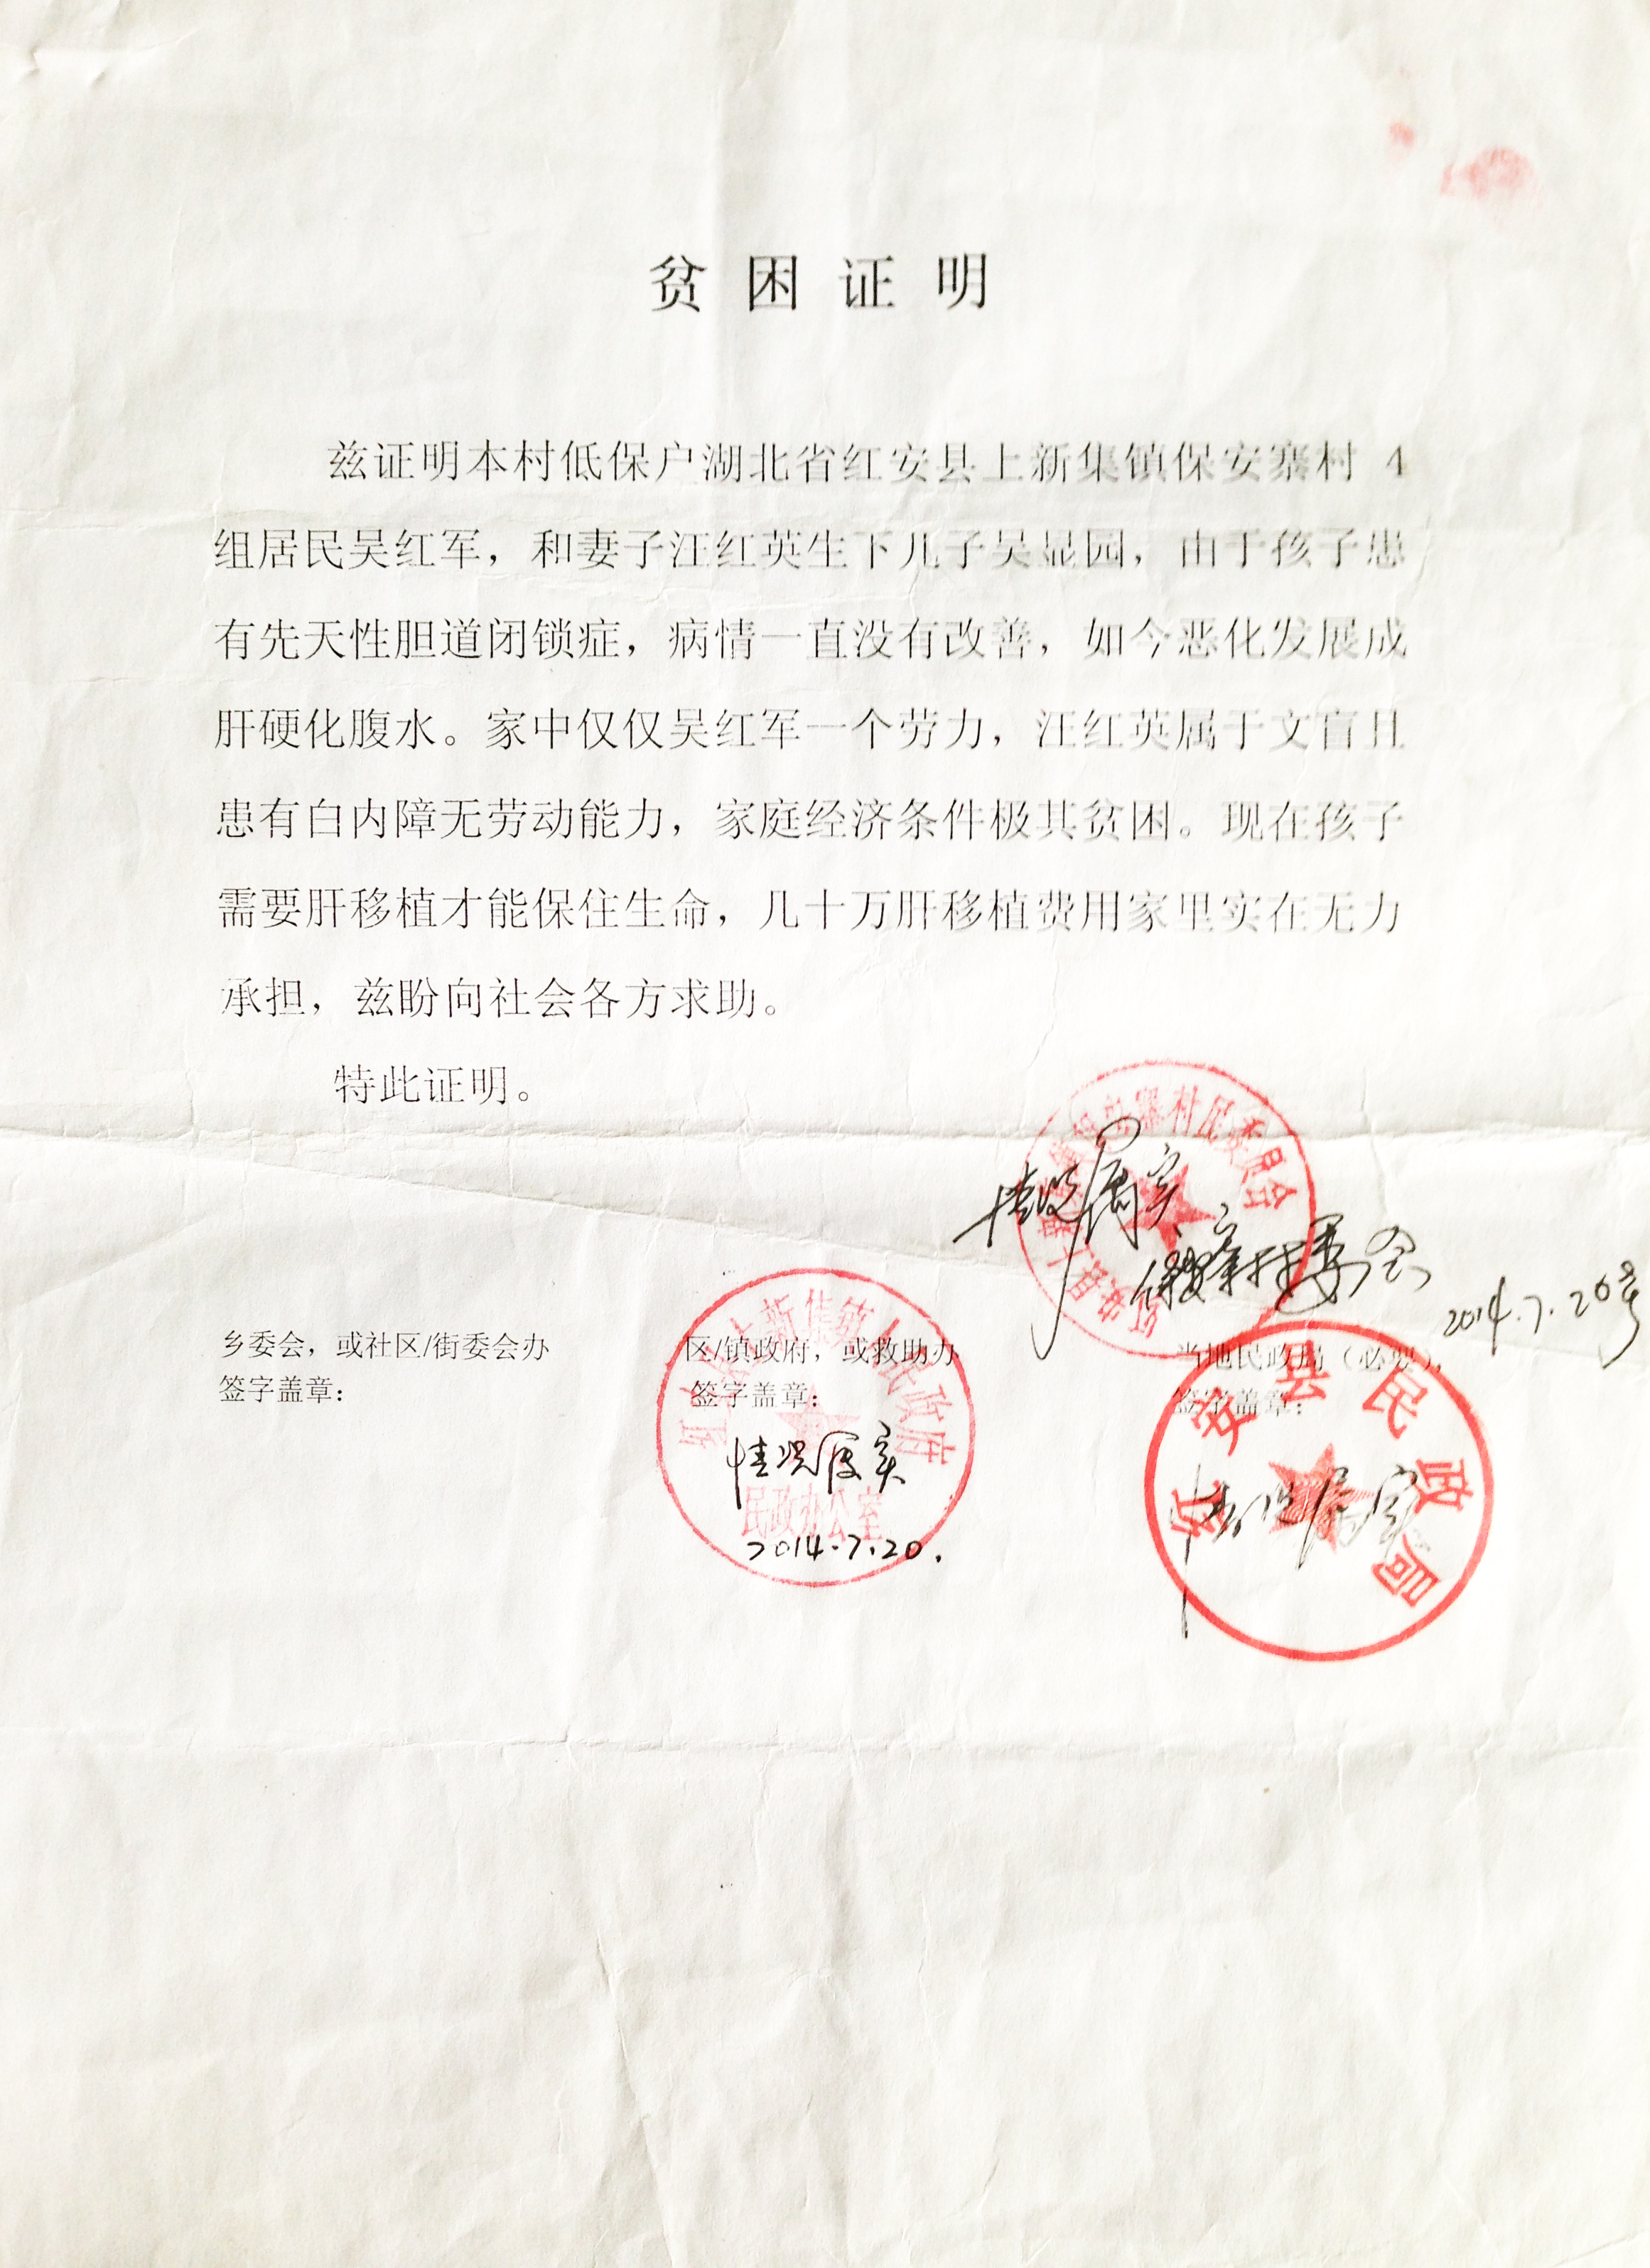 贫困证明
兹证明本村低保户湖北省红安县上新集镇保安寨村 4
组居民吴红军，和妻子汪红英生下儿子吴显园，由于孩子患
有先天性胆道闭锁症，病情一直没有改善，如今恶化发展成
肝硬化腹水。家中仅仅吴红军一个劳力，汪红英属于文盲且
患有白内障无劳动能力，家庭经济条件极其贫困。现在孩子
需要肝移植才能保住生命，几十万肝移植费用家里实在无力
承担，兹盼向社会各方求助。
特此证明。
寨村民委员会
情况属实
保安寨村委会
2014.7.20号
乡委会，或社区/街委会办
签字盖章：
上新集镇人民政府
区/镇政府，或救助办
签字盖章：
情况属实
民政办公室
2014.7.20.
当地民政局（必要），
签字盖章：
红安县民政局
情况属实